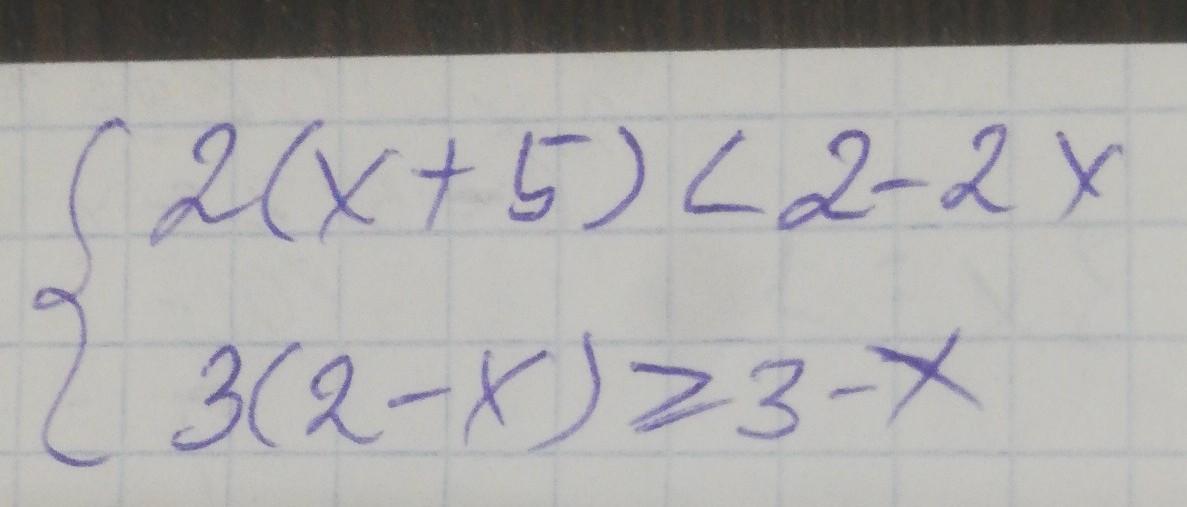 2(x+5)<2-2x
3(2-x)≥3-x